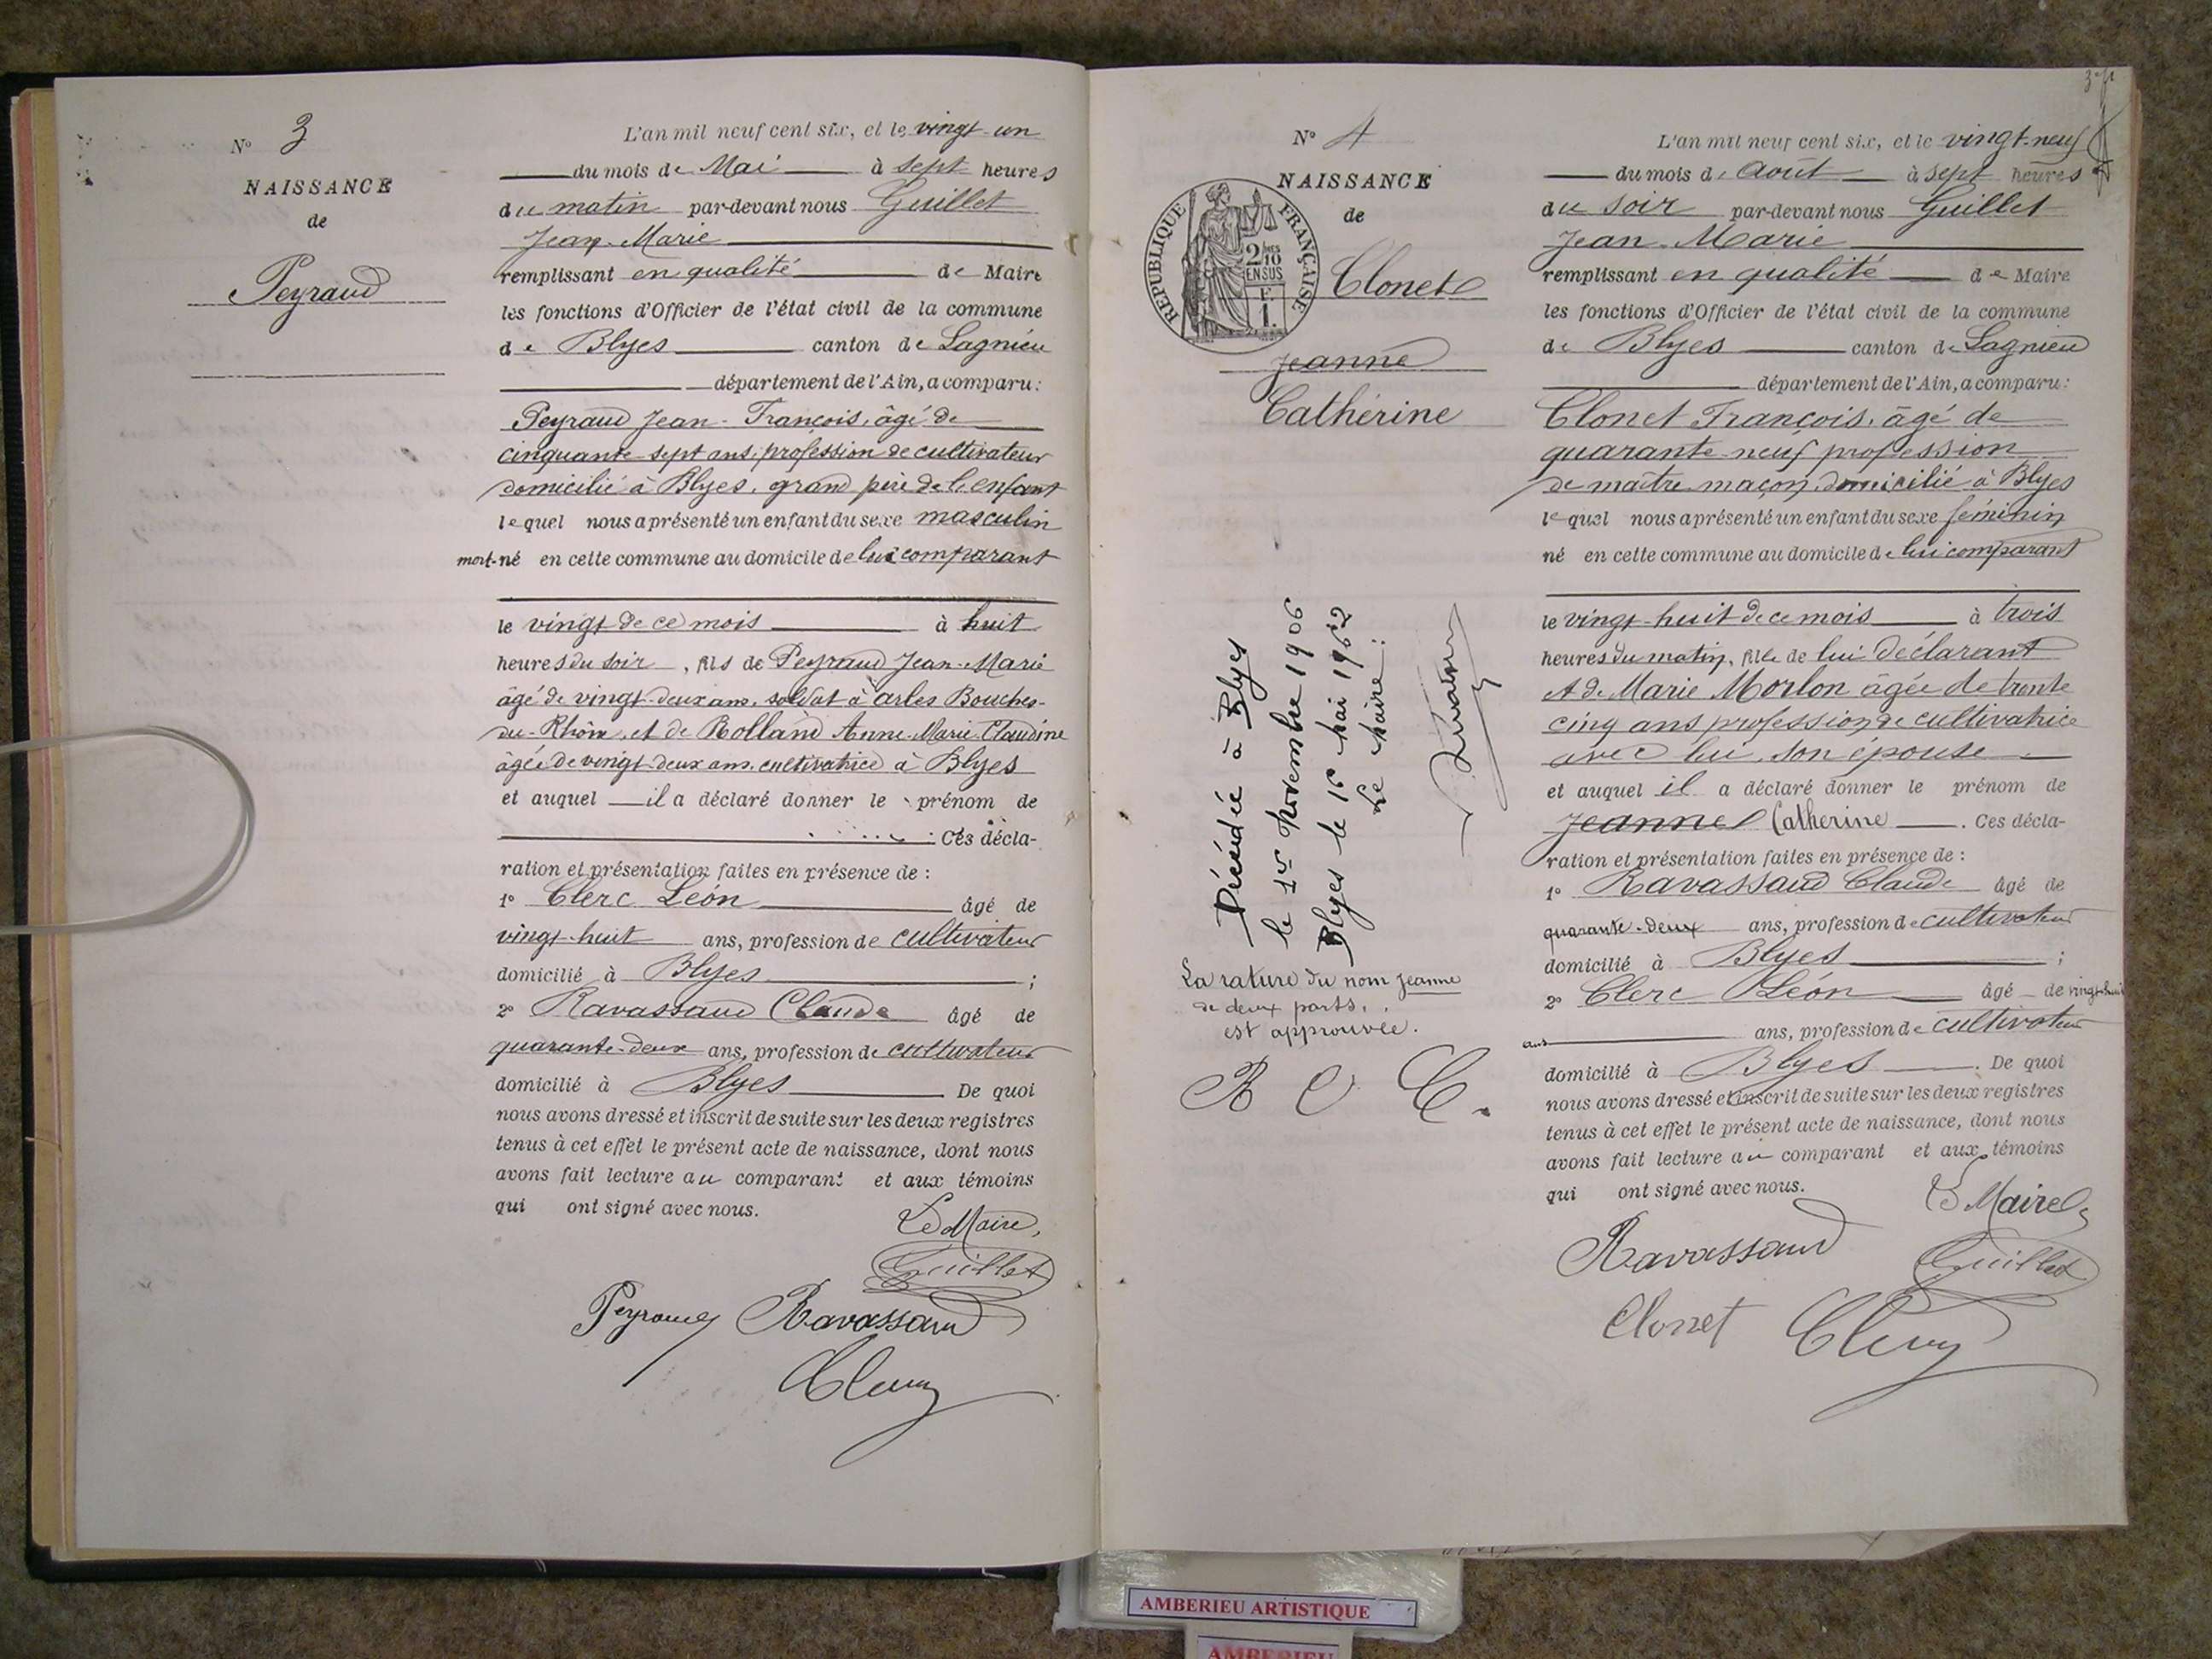 N° 3
NAISSANCE
de
Peyraud
L'an mil neuf cent six, et le vingt-un
du mois de Mai à sept heures
du matin par-devant nous Guillet
Jean-Marie
remplissant en qualité de Maire
les fonctions d'Officier de l'état civil de la commune
de Blyes canton de Lagnieu
département de l'Ain, a comparu:
Peyraud Jean-François, âgé de
cinquante-sept ans, profession de cultivateur
domicilié à Blyes, grand père de l'enfant
lequel nous a présenté un enfant du sexe masculin
mort-né en cette commune au domicile de lui comparant
le vingt de ce mois à huit
heures du soir, fils de Peyraud Jean-Marie
âgé de vingt-deux ans, soldat à Arles Bouches-
du-Rhône, et de Rolland Anne-Marie Claudine
âgée de vingt-deux ans, cultivatrice à Blyes
et auquel il a déclaré donner le prénom de
. Ces décla-
ration et présentation faites en présence de :
1° Clerc Léon âgé de
vingt-huit ans, profession de cultivateur
domicilié à Blyes ;
2° Ravassaud Claude âgé de
quarante-deux ans, profession de cultivateur
domicilié à Blyes. De quoi
nous avons dressé et inscrit de suite sur les deux registres
tenus à cet effet le présent acte de naissance, dont nous
avons fait lecture au comparant et aux témoins
qui ont signé avec nous.
Le Maire,
Guillet
Peyraud Ravassaud
Clerc
N° 4
NAISSANCE
de
RÉPUBLIQUE FRANÇAISE
2/10
EN SUS
F.
1.
Clonet
Jeanne
Catherine
Décédée à Blyes
le 1er Novembre 1906
Blyes le 16 Mai 1962
Le Maire:
La rature du nom Jeanne
de deux parts,
est approuvée.
R C C.
L'an mil neuf cent six, et le vingt-neuf
du mois d'Août à sept heures
du soir par-devant nous Guillet
Jean-Marie
remplissant en qualité de Maire
les fonctions d'Officier de l'état civil de la commune
de Blyes canton de Lagnieu
département de l'Ain, a comparu:
Clonet François, âgé de
quarante-neuf profession
de maître maçon, domicilié à Blyes
lequel nous a présenté un enfant du sexe féminin
né en cette commune au domicile de lui comparant
le vingt-huit de ce mois à trois
heures du matin, fille de lui déclarant
et de Marie Morlon âgée de trente
cinq ans profession de cultivatrice
avec lui, son épouse
et auquel il a déclaré donner le prénom de
Jeanne Catherine. Ces décla-
ration et présentation faites en présence de :
1° Ravassaud Claude âgé de
quarante-deux ans, profession de cultivateur
domicilié à Blyes ;
2° Clerc Léon âgé de vingt-huit
ans ans, profession de cultivateur
domicilié à Blyes. De quoi
nous avons dressé et inscrit de suite sur les deux registres
tenus à cet effet le présent acte de naissance, dont nous
avons fait lecture au comparant et aux témoins
qui ont signé avec nous.
Le Maire
Ravassaud Guillet
Clonet Clerc
AMBERIEU ARTISTIQUE
AMBERIEU